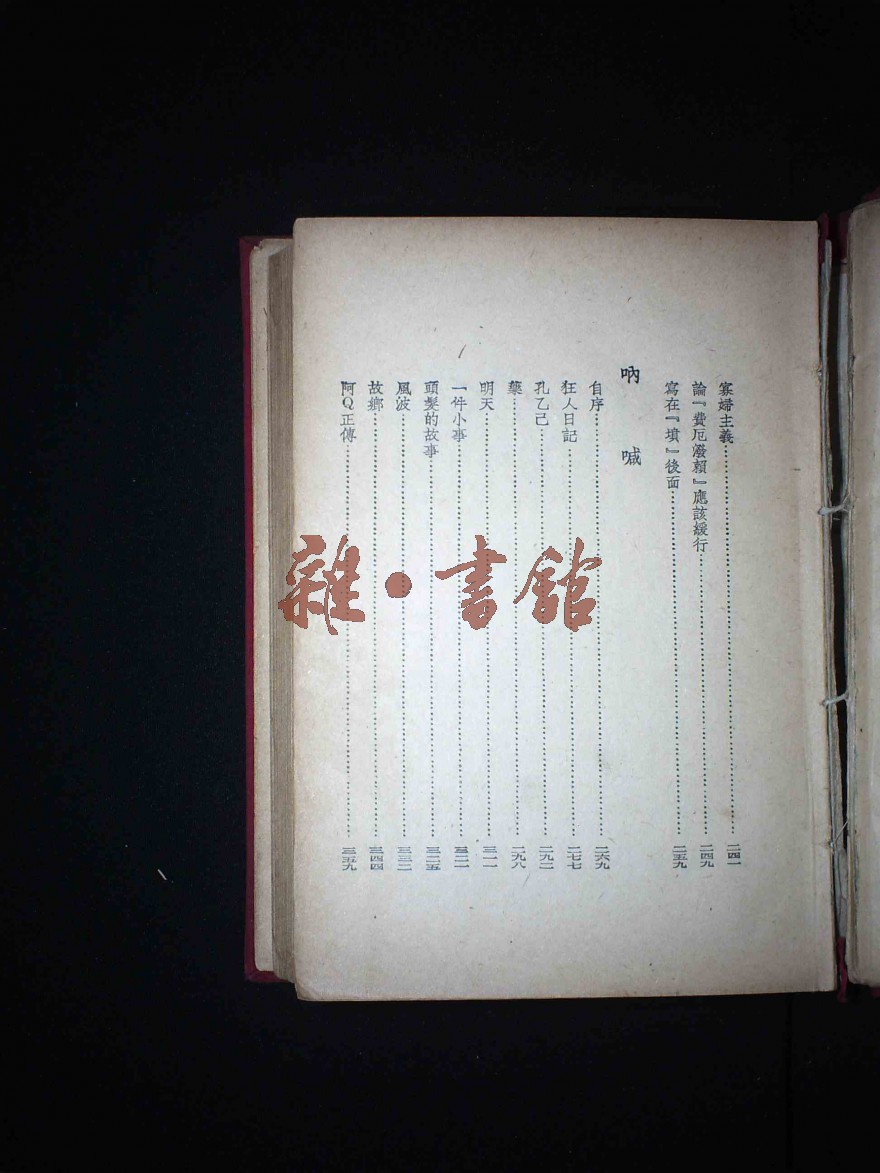 寡婦主義……二四一
論『費厄潑賴』應該緩行……二四九
寫在『墳』後面……二五九
吶喊
自序……二六九
狂人日記……二七七
孔乙己……二九二
藥……二九八
明天……三一一
一件小事……三二一
頭髮的故事……三二五
風波……三三二
故鄉……三四四
阿Q正傳……三五九
雜·書館